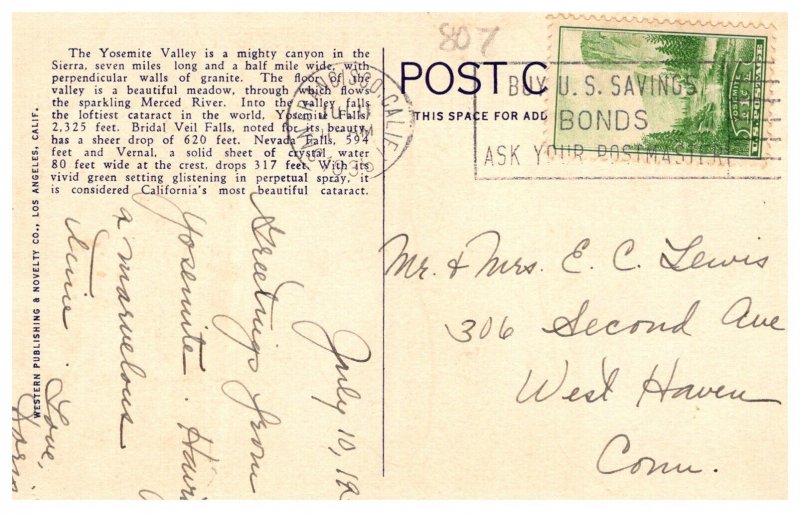 807
The Yosemite Valley is a mighty canyon in the
Sierra, seven miles long and a half mile wide, with
perpendicular walls of granite. The floor of the
valley is a beautiful meadow, through which flows
the sparkling Merced River. Into the valley falls
the loftiest cataract in the world, Yosemite Falls
2,325 feet. Bridal Veil Falls, noted for its beauty,
has a sheer drop of 620 feet. Nevada Falls, 594
feet and Vernal, a solid sheet of crystal water
80 feet wide at the crest, drops 317 feet. With its
vivid green setting glistening in perpetual spray, it
is considered California's most beautiful cataract.
WESTERN PUBLISHING & NOVELTY CO., LOS ANGELES, CALIF.
POST C
THIS SPACE FOR ADD
CALIF.
BUY U.S. SAVINGS
BONDS
ASK YOUR POSTMASTER
YOSEMITE
July 10, 19
Greetings from
Yosemite.
a marvelous
time. Love,
Mr. & Mrs. E. C. Lewis
306 Second Ave
West Haven
Conn.